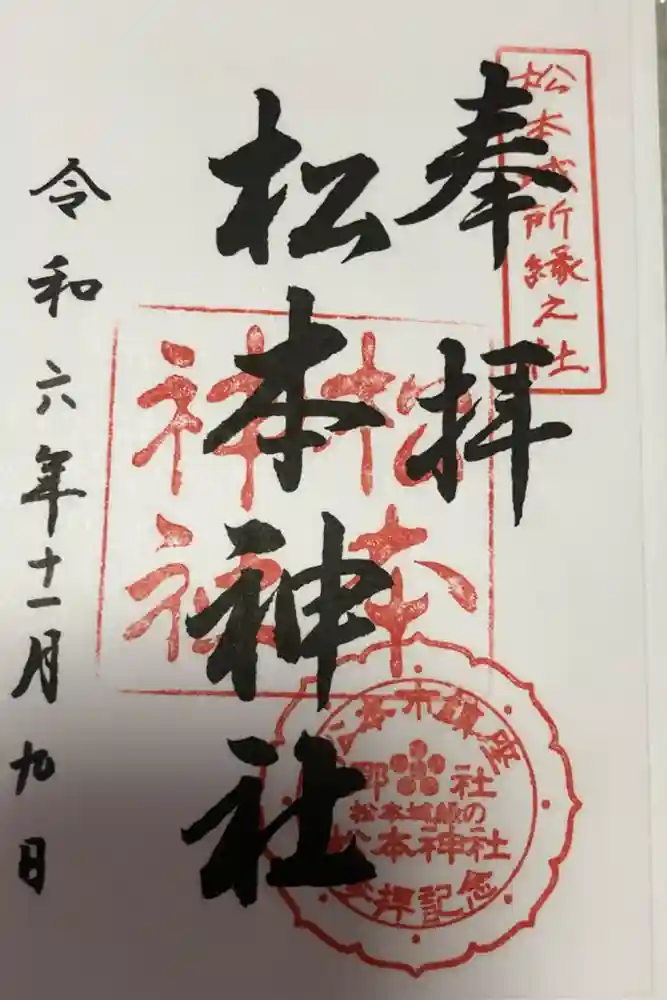 松本城所縁之社
奉拝
松本神社
松本
神社
令和六年十一月九日
松本市鎮座
郷社
松本城緑の
松本神社
奉拝記念